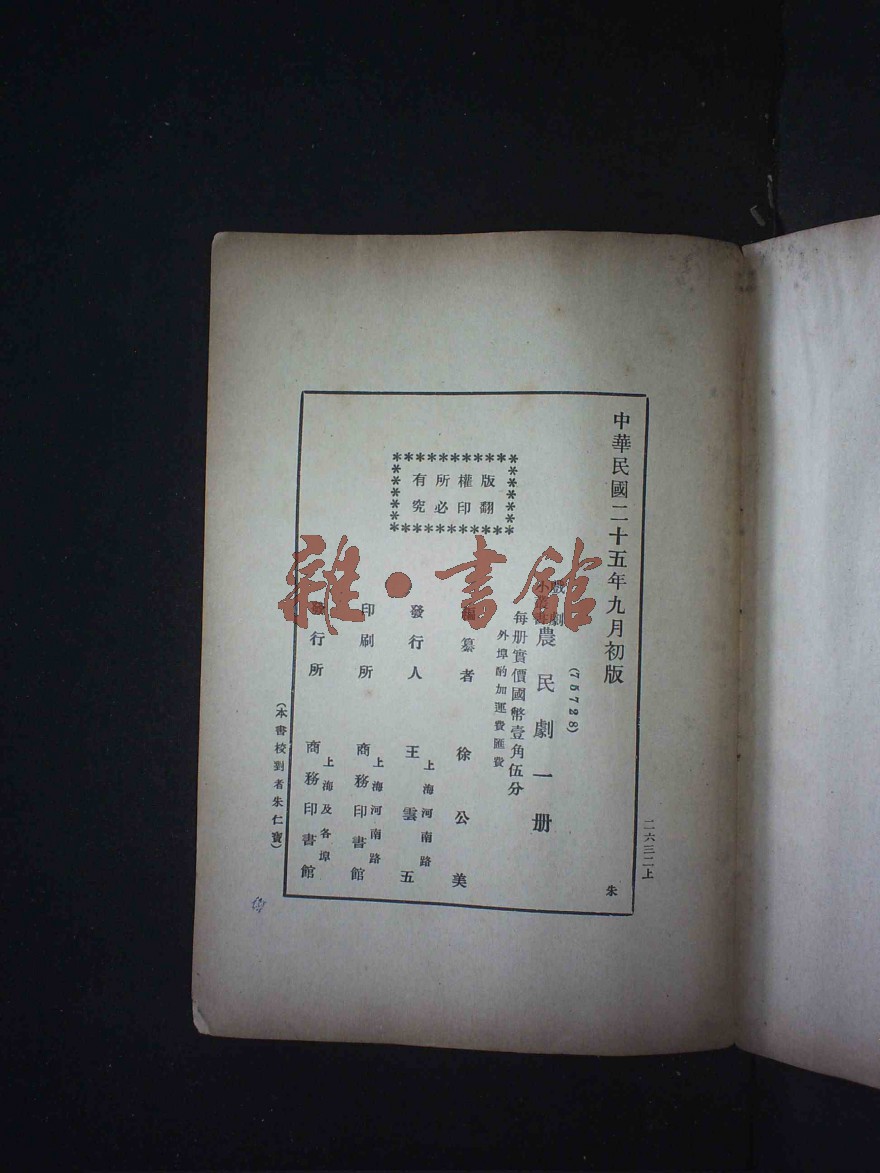 二六三二上
中華民國二十五年九月初版
朱
(75728)
戲劇
小叢書
農民劇一册
每册實價國幣壹角伍分
外埠酌加運費匯費
版權所有
翻印必究
編纂者 徐公美
發行人 王雲五
上海河南路
印刷所 商務印書館
上海河南路
發行所 商務印書館
上海及各埠
(本書校對者朱仁寶)
雜·書館